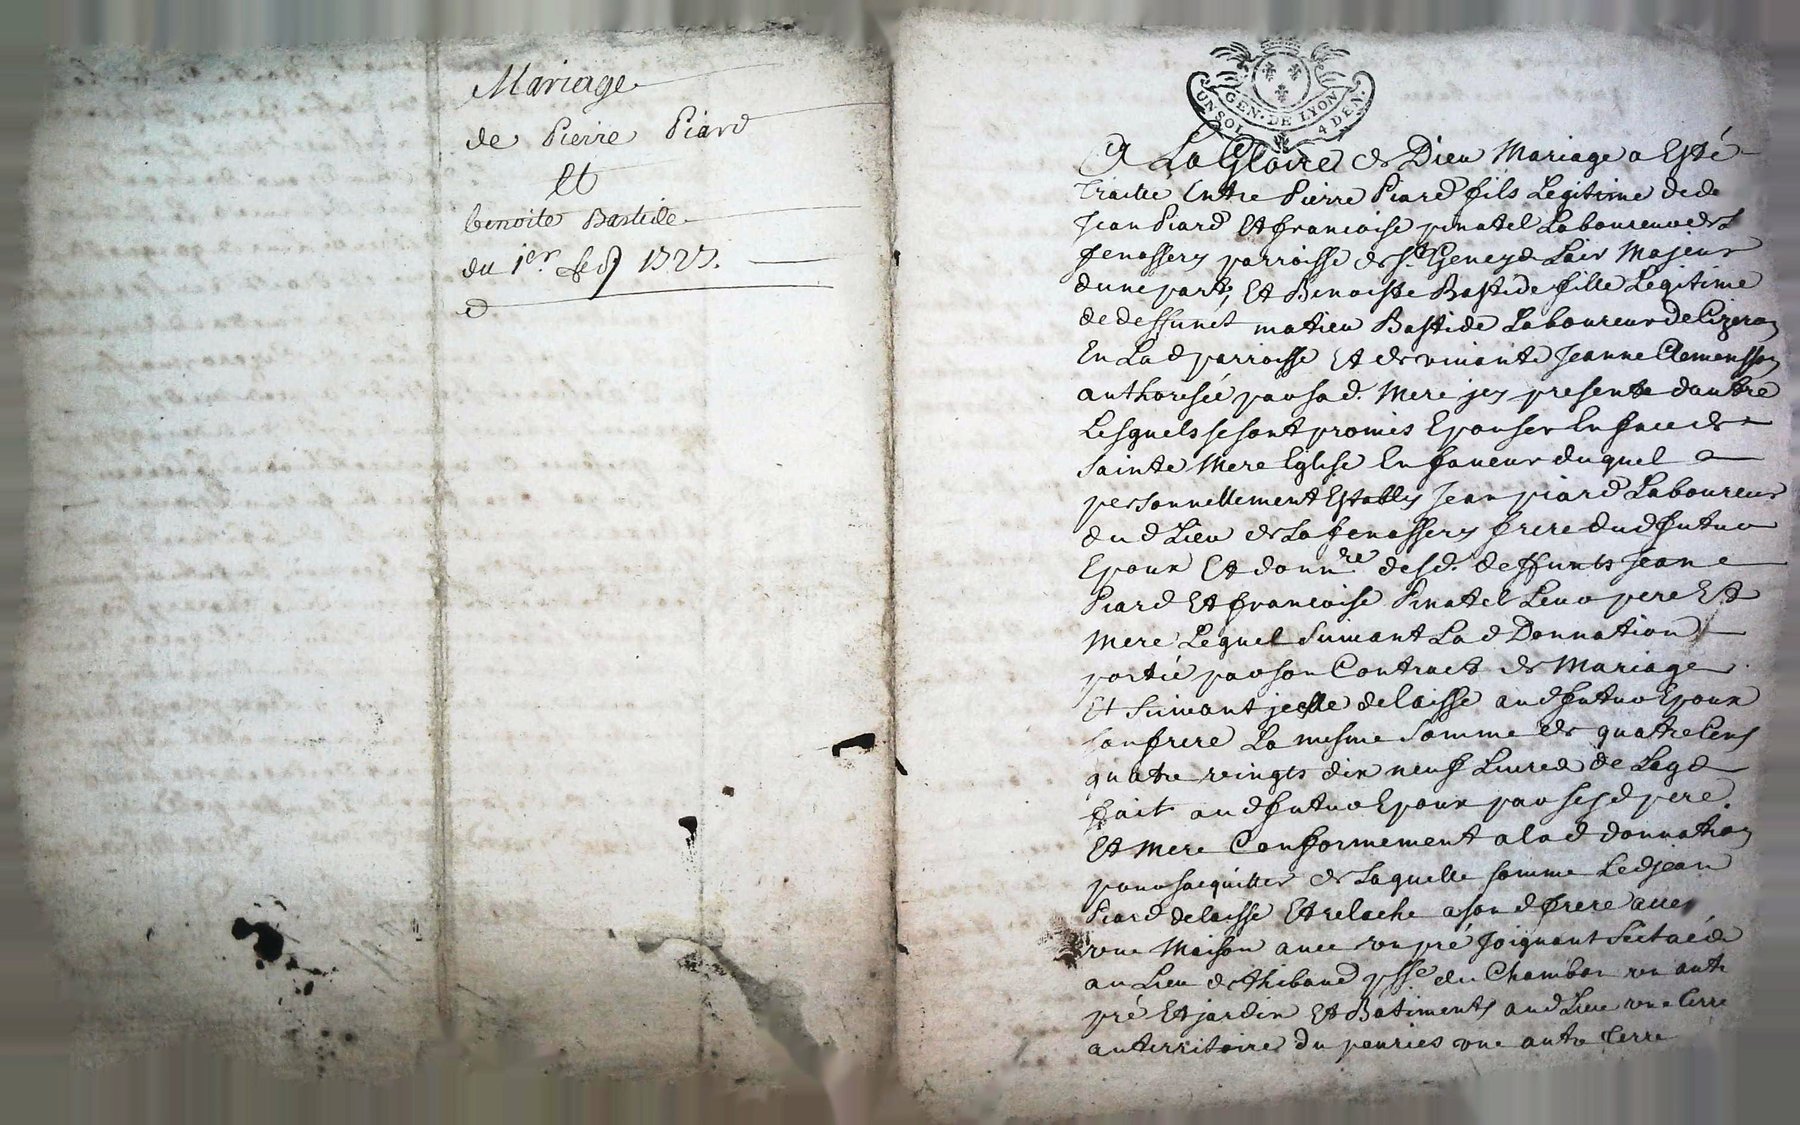 Mariage
de Pierre Piard
Et
benoite Bastide
du 1er.
GEN. DE LYON
UN SOL 4 DEN.
A La Gloire de Dieu Mariage a Esté
traitté Entre Pierre Piard fils Legitime de
Jean Piard Et francoise pinatel Laboureur de
fenassery parroisse de St Geneyd Lair Majeur
dune part, Et Benoiste Bastide fille Legitime
de deffunct matieu Bastide Laboureur de Cizeron
En La d parroisse Et de vivante Jeanne Clemensson
authorisée par sa d. Mere jcy presente dautre
Lesquels se sont promis Epouser En face de
Sainte Mere Eglise En faveur duquel a
personnellement Estably Jean piard Laboureur
du d Lieu de La fenassery frere du d futur
Epoux Et donn.re desd. deffunts Jean
Piard Et francoise Pinatel Leur pere Et
Mere Lequel Suivant La d Donnation
portée par son Contract de Mariage
Et Suivant jcelle delaisse au d futur Epoux
son frere La mesme Somme de quatre Cens
quatre vingts dix neuf Livres de Leg
fait au d futur Epoux par ses d pere
Et Mere Conformement a la d donnation
pour sacquitter de Laquelle somme Led jean
Piard delaisse Et relache a son d frere
une Maison avec un pré Joignant
au Lieu de thibaud psse du Chambon un autre
pré Et jardin Et Batiments au d Lieu une terre
au territoire du une autre Terre